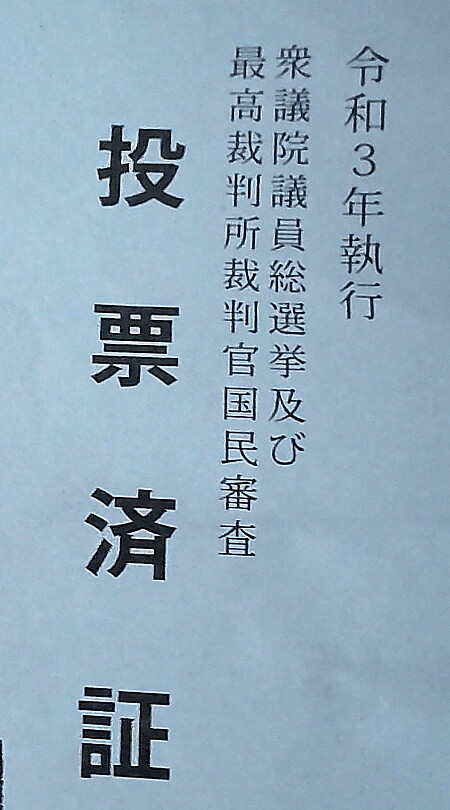 令和3年執行
衆議院議員総選挙及び
最高裁判所裁判官国民審査
投票済証